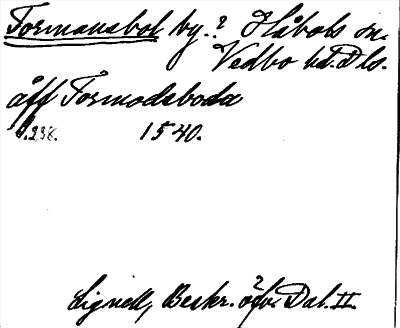 Tormansbol by.? Håbols sn.
Vedbo hd. Dls.
åff Tormodsboda
s.238. 1540.
Lignell, Beskr. öfv. Dal. II.
?